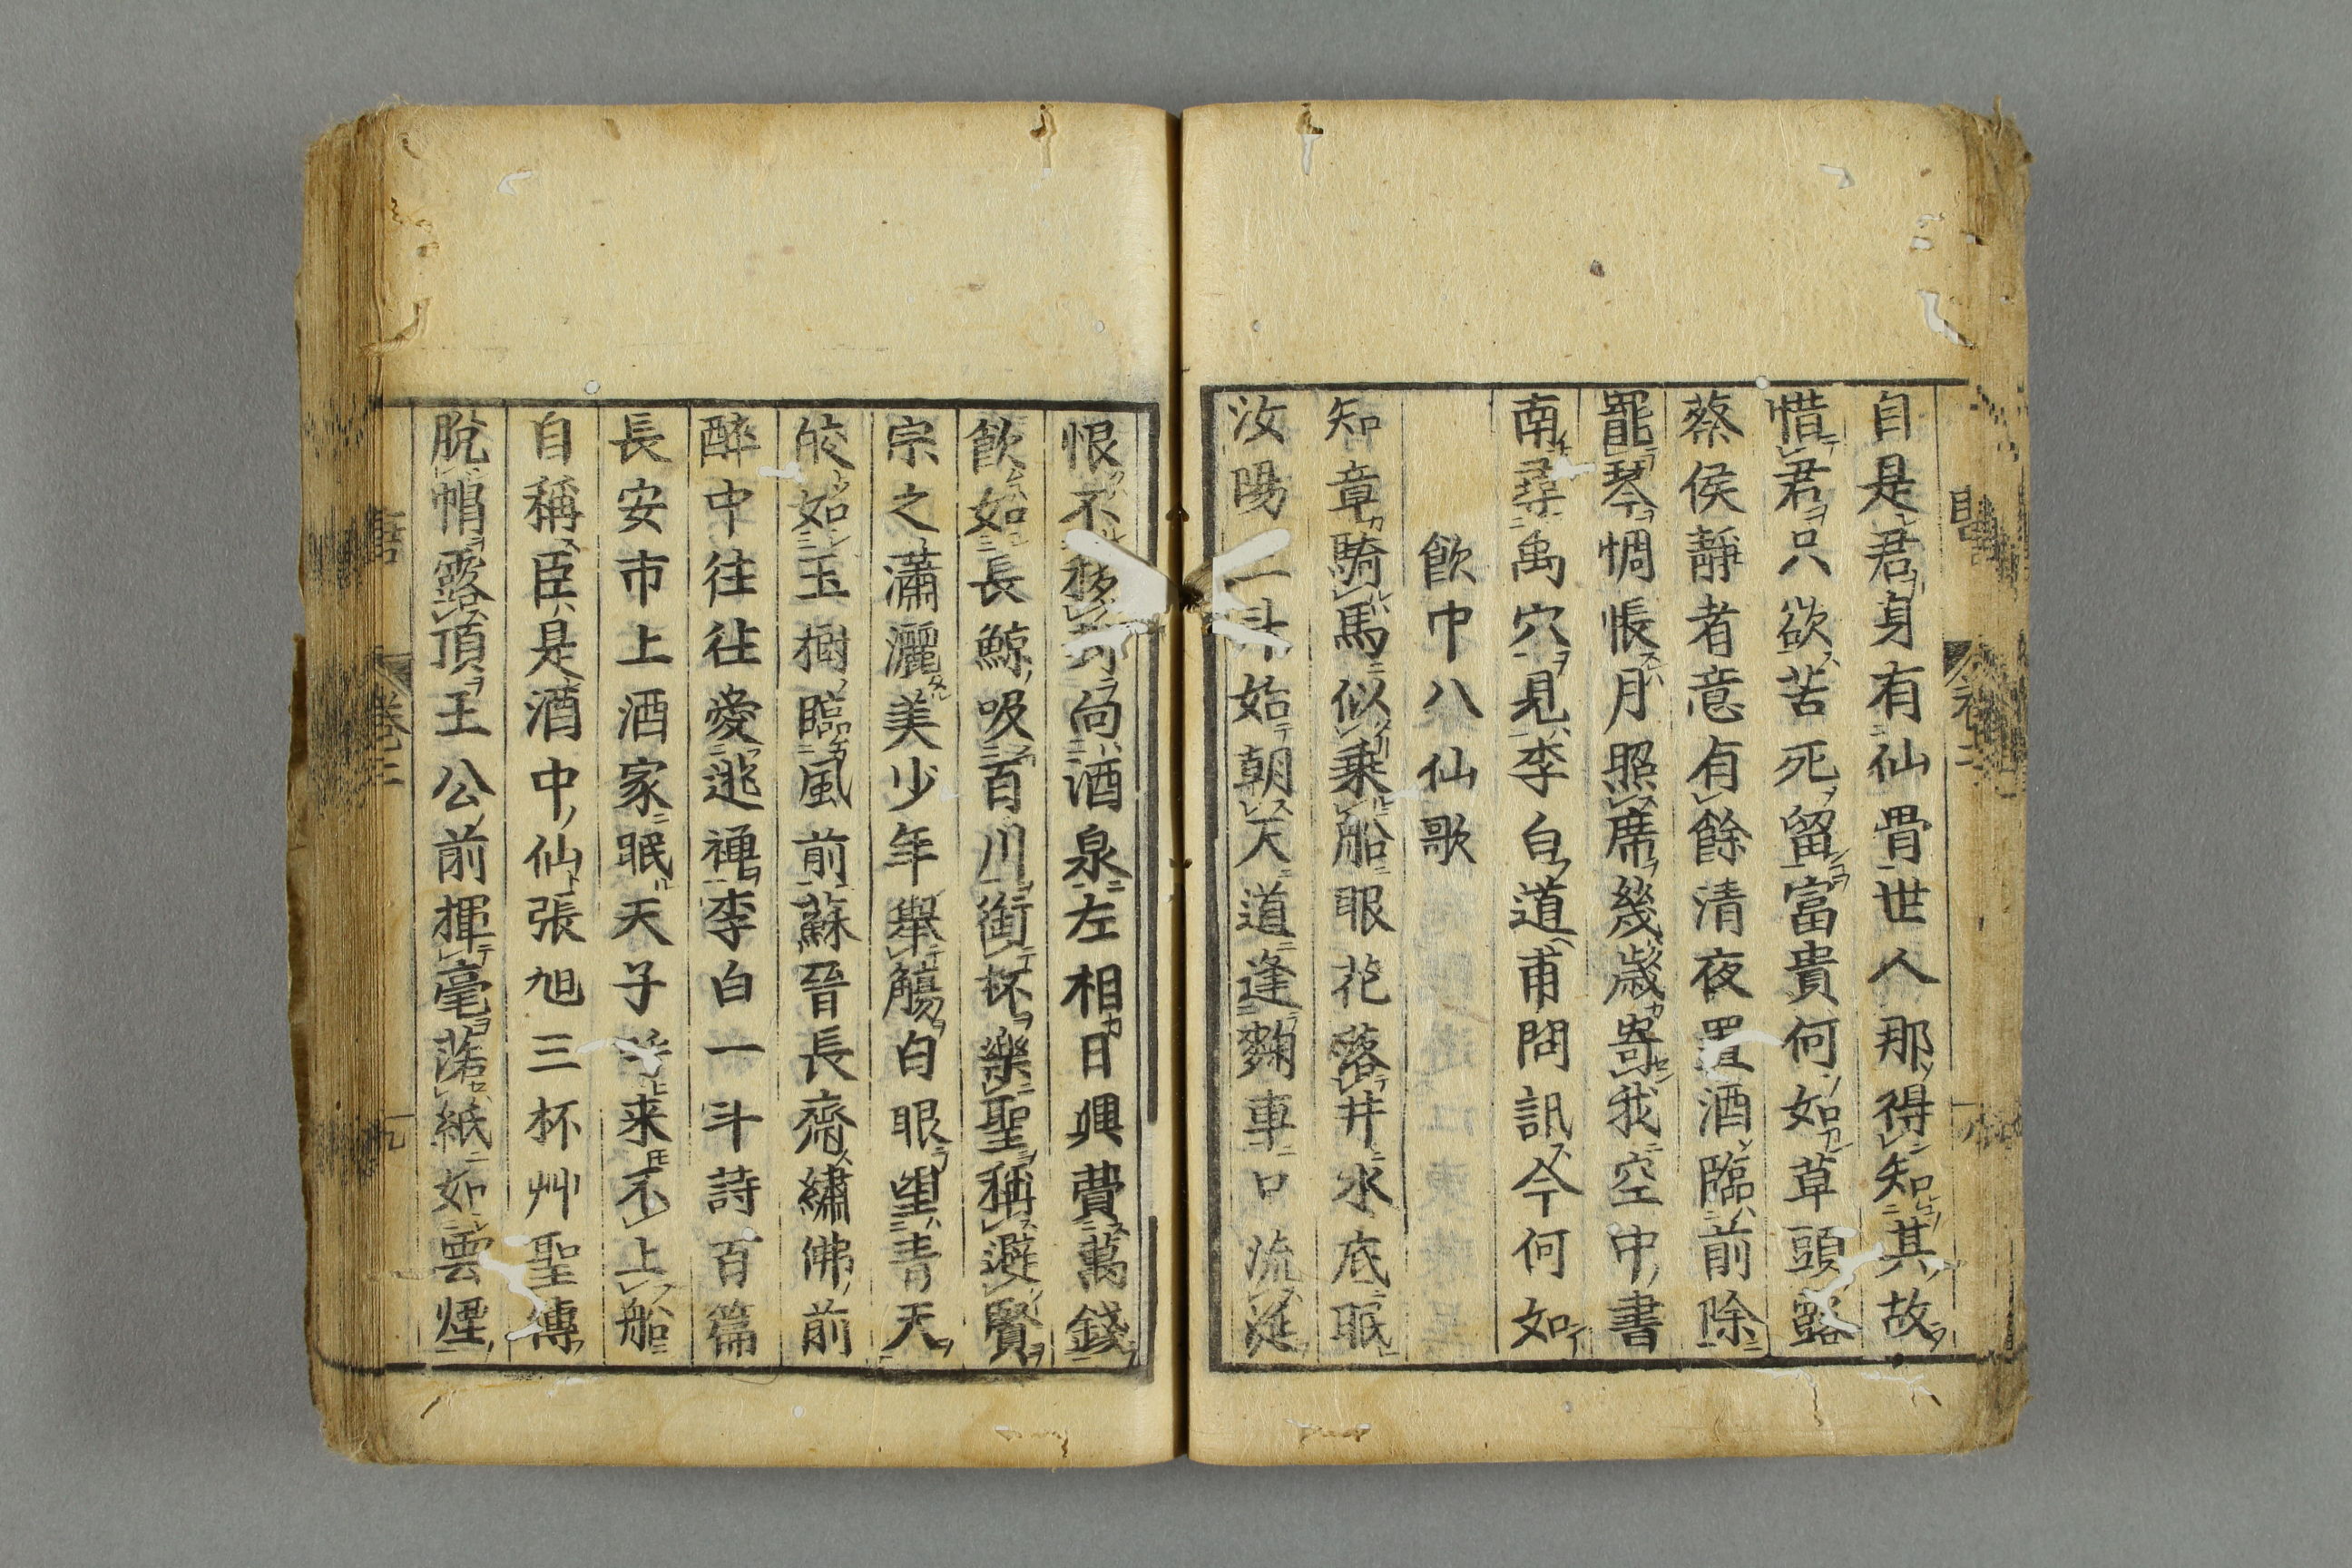 自是君身有仙骨世人那得知其故
惜君只欲苦死留富貴何如草頭露
蔡侯靜者意有餘清夜置酒臨前除
罷琴惆悵月照席幾歳寄我空中書
南尋禹穴見李白道甫問訊今何如
飲中八仙歌
知章騎馬似乗船眼花落井水底眠
汝陽三斗始朝天道逢麴車口流涎
恨不移封向酒泉左相日興費萬錢
飲如長鯨吸百川銜杯樂聖稱避賢
宗之瀟灑美少年舉觴白眼望青天
皎如玉樹臨風前蘇晉長齋繡佛前
醉中往往愛逃禪李白一斗詩百篇
長安市上酒家眠天子呼来不上船
自稱臣是酒中仙張旭三杯艸聖傳
脱帽露頂王公前揮毫落紙如雲煙
卷二
九